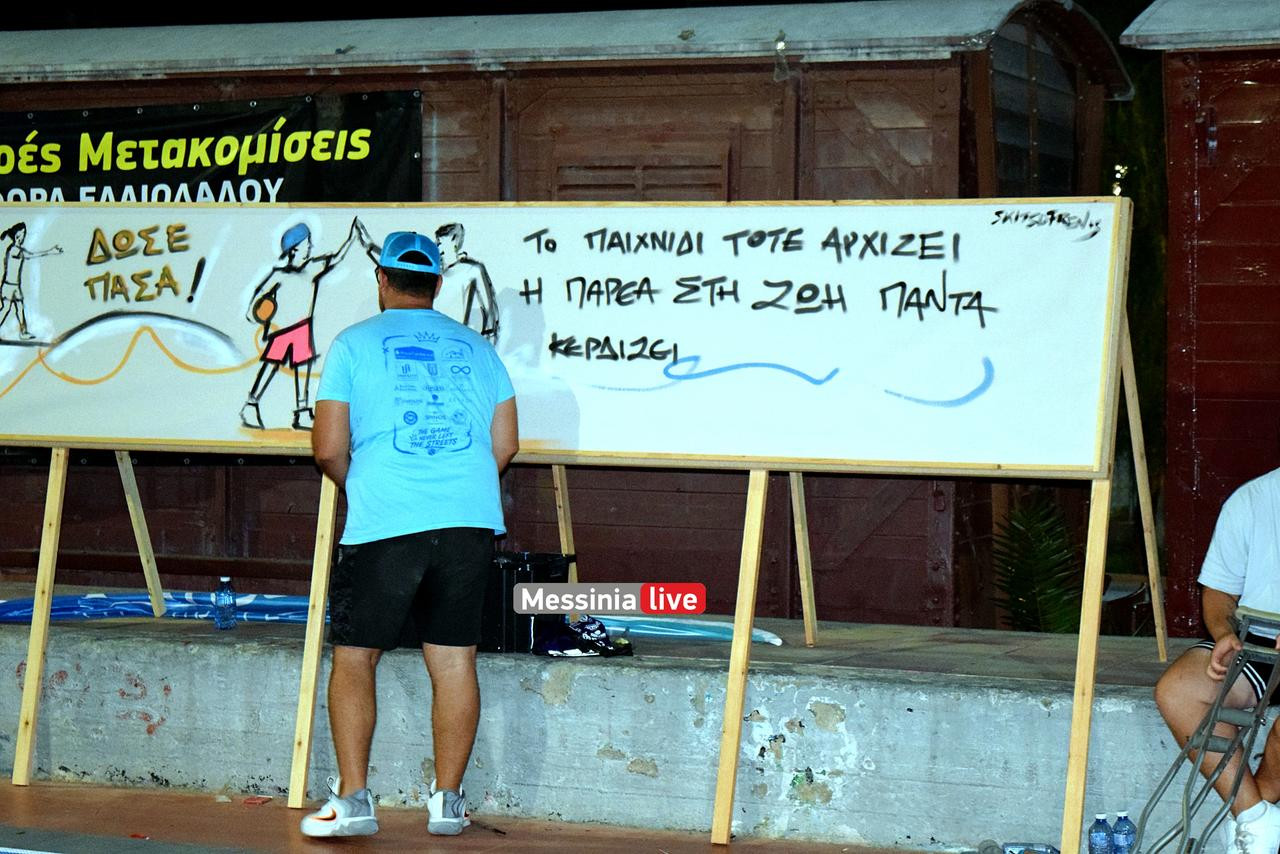 ρές Μετακομίσεις
ΦΟΡΑ ΕΛΑΙΟΛΑΔΟΥ
ΔΩΣΕ
ΠΑΣΑ!
ΤΟ ΠΑΙΧΝΙΔΙ ΤΟΤΕ ΑΡΧΙΖΕΙ
Η ΠΑΡΕΑ ΣΤΗ ΖΩΗ ΠΑΝΤΑ
ΚΕΡΔΙΖΕΙ
THE GAME
NEVER LEFT
THE STREETS
Messinia live